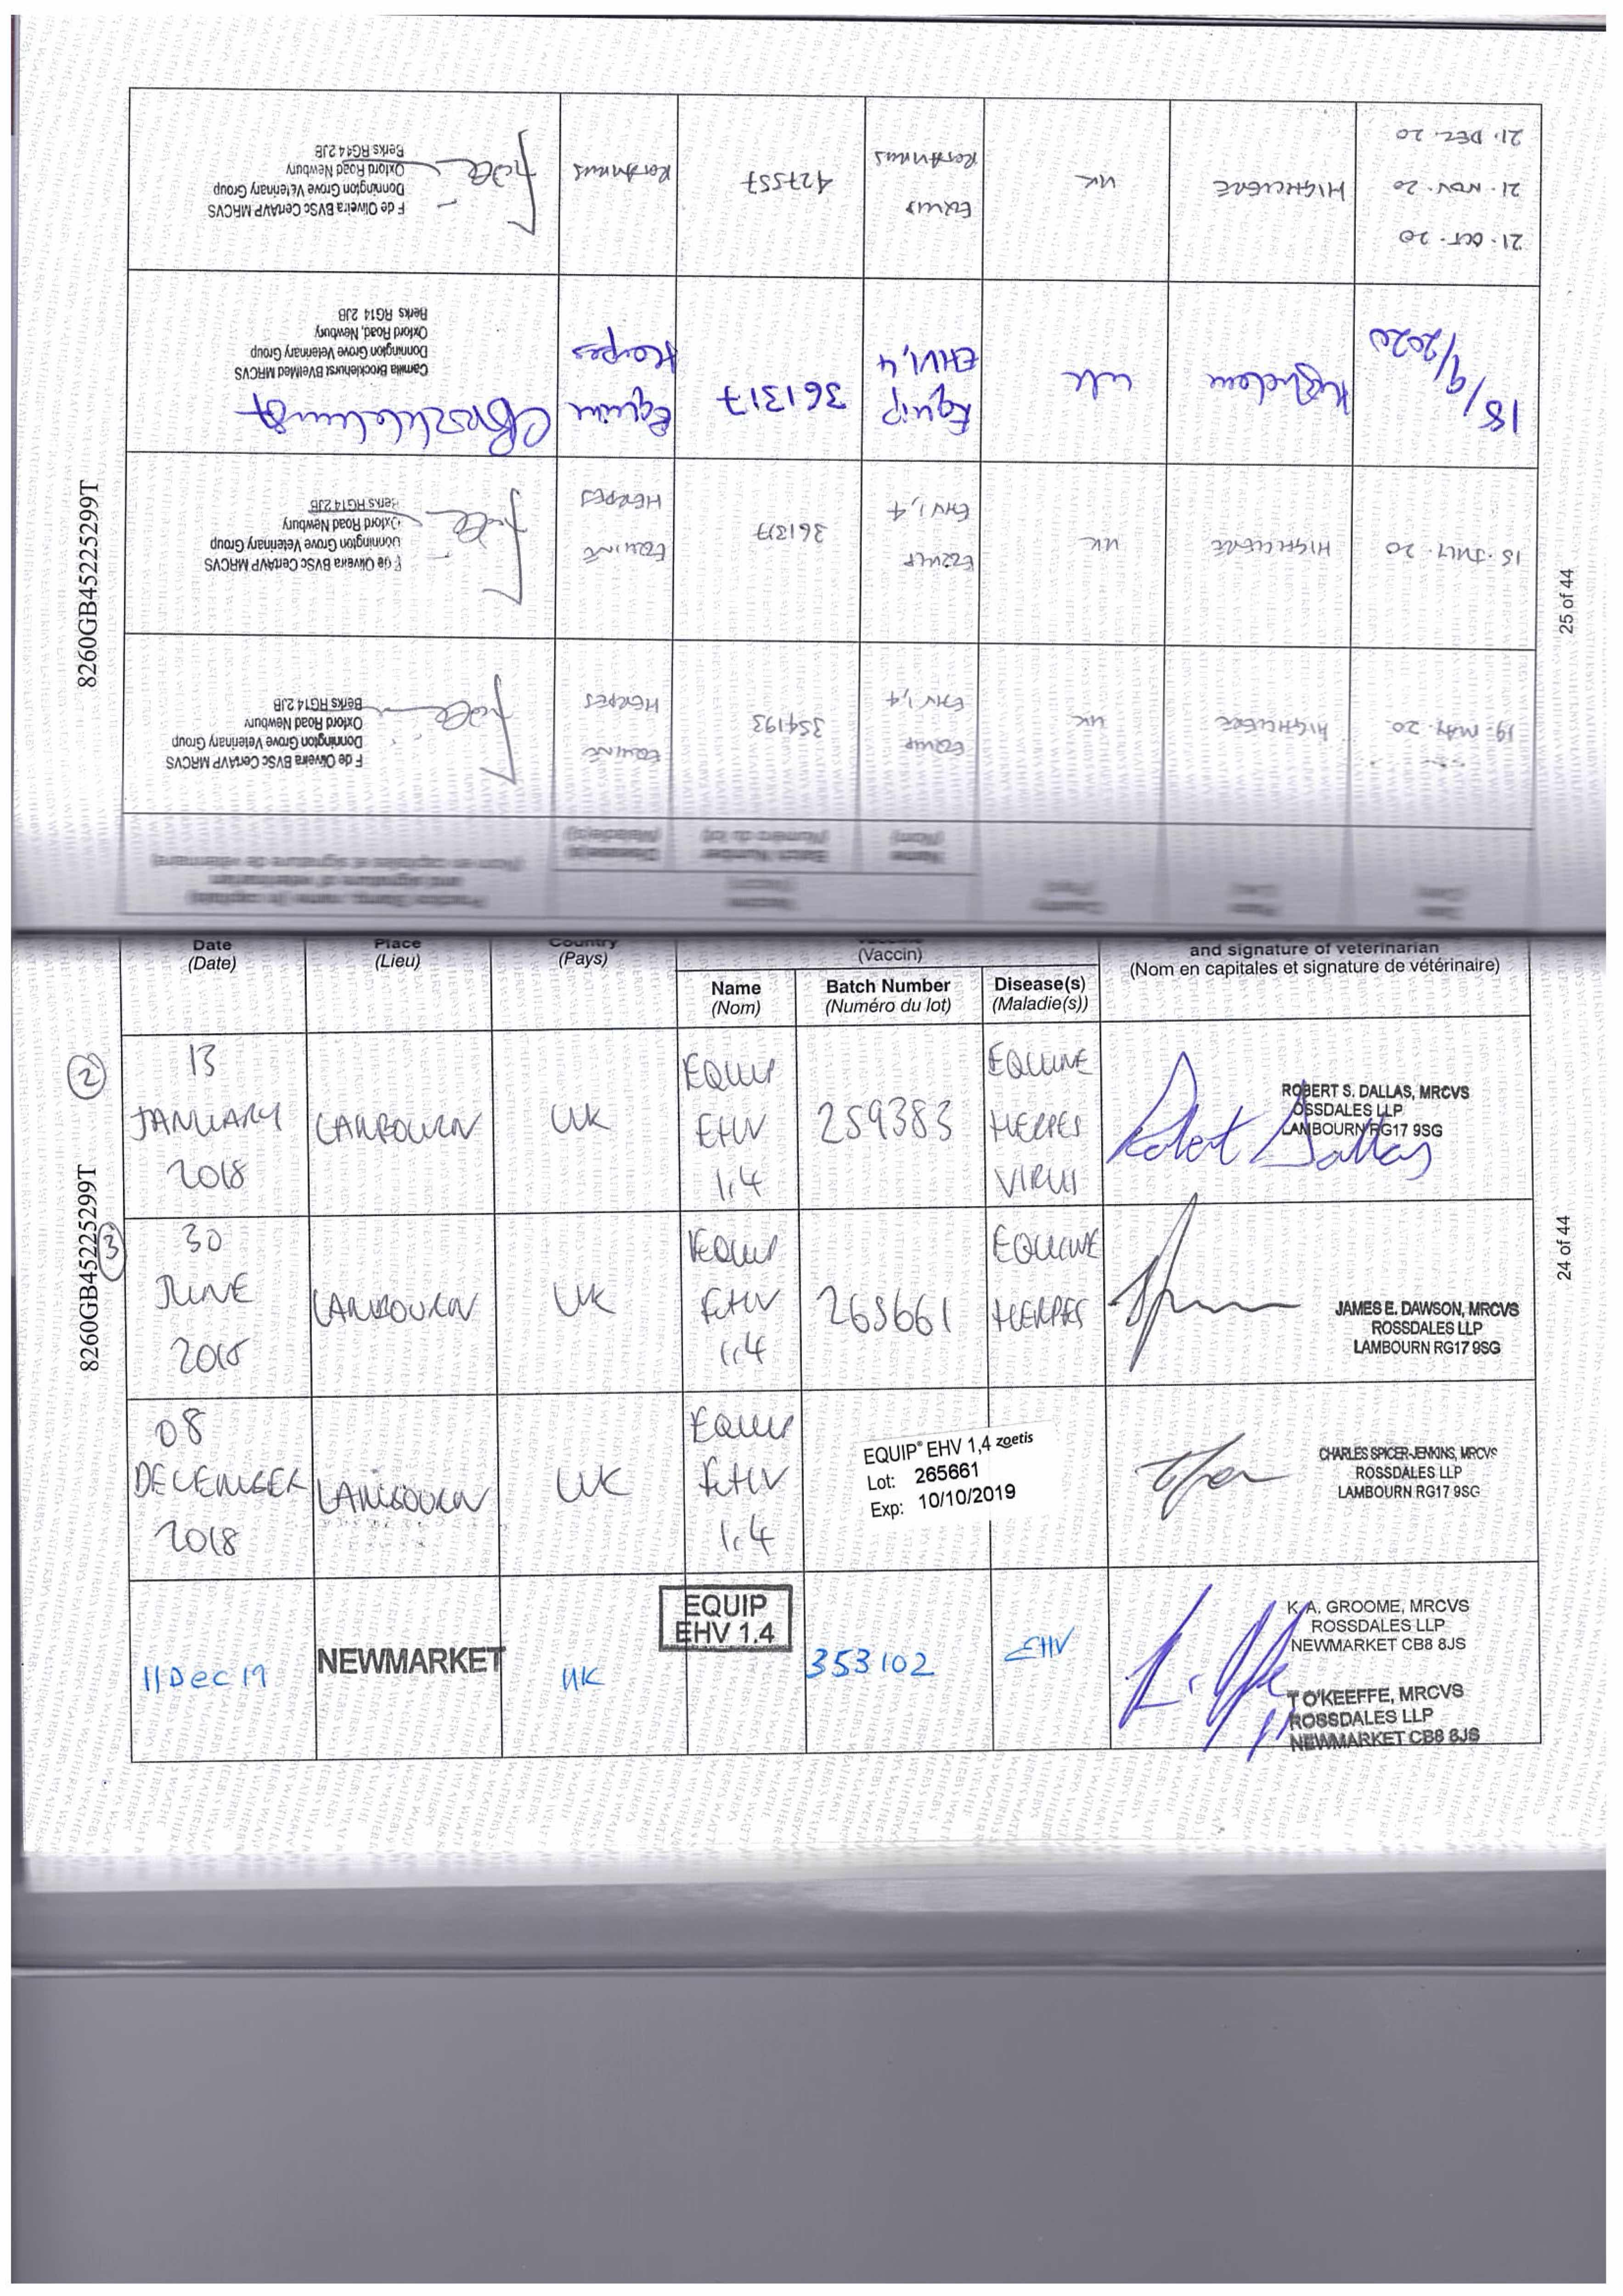 8260GB45225299T
25 of 44
19. MAY. 20.
HIGHCLERE
UK
EQUIP
EHV 1,4
354193
EQUINE
HERPES
F de Oliveira BVSc CertAVP MRCVS
Donnington Grove Veterinary Group
Oxford Road Newbury
Berks RG14 2JB
15. JULY. 20
HIGHCLERE
UK
EQUIP
EHV 1,4
361317
EQUINE
HERPES
F de Oliveira BVSc CertAVP MRCVS
Donnington Grove Veterinary Group
Oxford Road Newbury
Berks RG14 2JB
18/9/2020
Highclere
UK
Equip
EHV1,4
361317
Equine
Herpes
CBrocklehurst
Camilla Brocklehurst BVetMed MRCVS
Donnington Grove Veterinary Group
Oxford Road, Newbury
Berks RG14 2JB
21. OCT. 20
21. NOV. 20
21. DEC. 20
HIGHCLERE
UK
EQUIS
ROTAVIRUS
427557
ROTAVIRUS
F de Oliveira BVSc CertAVP MRCVS
Donnington Grove Veterinary Group
Oxford Road Newbury
Berks RG14 2JB
8260GB45225299T
24 of 44
Date
(Date)
Place
(Lieu)
Country
(Pays)
(Vaccin)
Name
(Nom)
Batch Number
(Numéro du lot)
Disease(s)
(Maladie(s))
and signature of veterinarian
(Nom en capitales et signature de vétérinaire)
2
13
JANUARY
2018
LAMBOURN
UK
EQUIP
EHV
1,4
259383
EQUINE
HERPES
VIRUS
Robert Dallas
ROBERT S. DALLAS, MRCVS
ROSSDALES LLP
LAMBOURN RG17 9SG
3
30
JUNE
2018
LAMBOURN
UK
EQUIP
EHV
1,4
265661
EQUINE
HERPES
JAMES E. DAWSON, MRCVS
ROSSDALES LLP
LAMBOURN RG17 9SG
08
DECEMBER
2018
LAMBOURN
UK
EQUIP
EHV
1,4
EQUIP® EHV 1,4 zoetis
Lot: 265661
Exp: 10/10/2019
CHARLES SPICER-JENKINS, MRCVS
ROSSDALES LLP
LAMBOURN RG17 9SG
11 Dec 19
NEWMARKET
UK
EQUIP
EHV 1.4
353102
EHV
K.A. GROOME, MRCVS
ROSSDALES LLP
NEWMARKET CB8 8JS
T O'KEEFFE, MRCVS
ROSSDALES LLP
NEWMARKET CB8 8JS